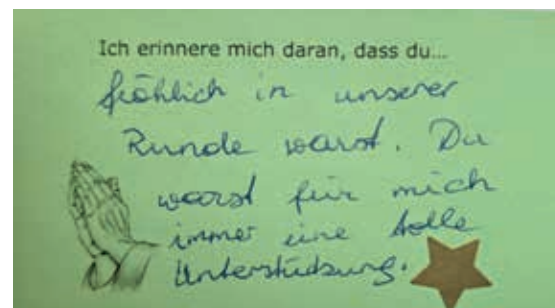 Ich erinnere mich daran, dass du...
fröhlich in unserer
Runde warst. Du
warst für mich
immer eine tolle
Unterstützung.